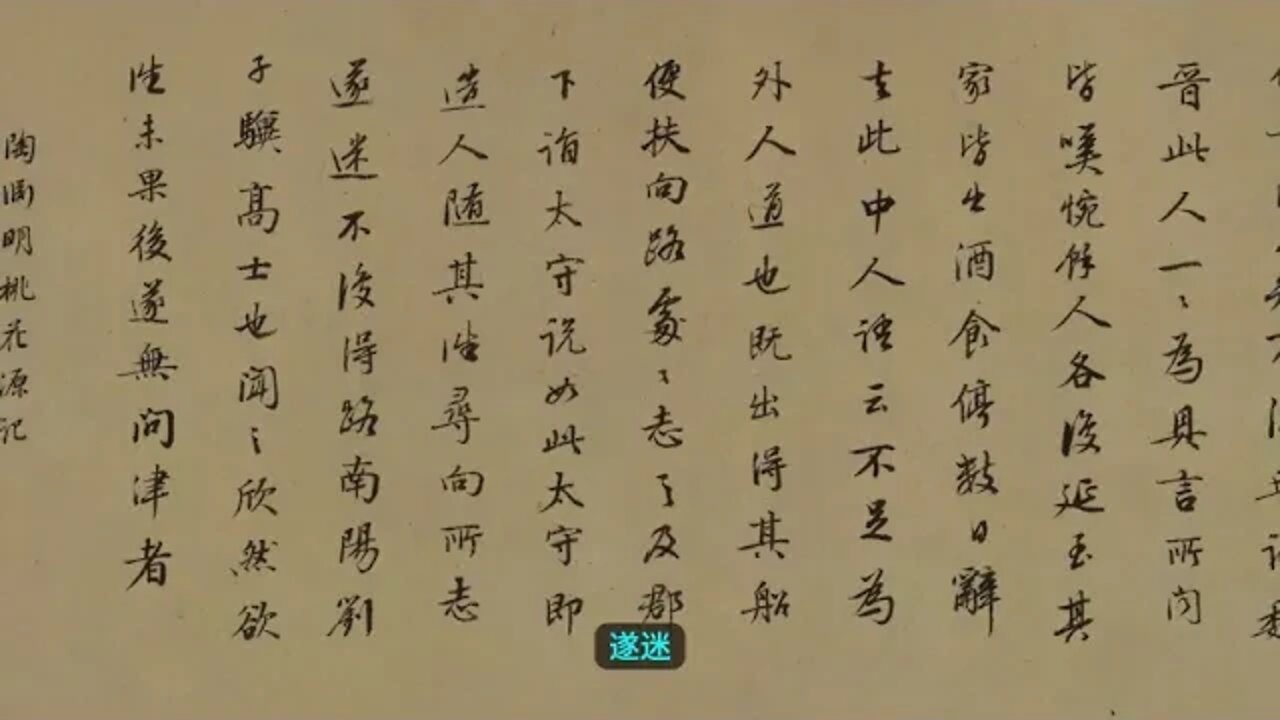 晋此人一〻為具言所闻
皆嘆惋馀人各復延至其
家皆出酒食停数日辭
去此中人语云不足為
外人道也既出得其船
便扶向路處〻志之及郡
下诣太守说如此太守即
造人随其往尋向所志
遂迷不復得路南陽劉
子驥高士也闻之欣然欲
往未果後遂無问津者
陶渊明桃花源记
遂迷